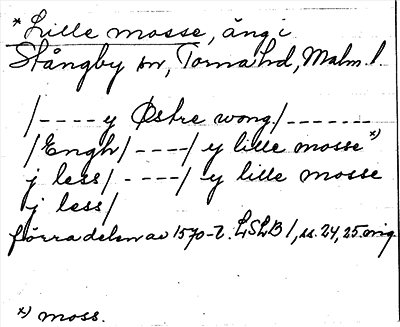 *Lille mosse, äng i
Stångby sn, Torna hd, Malm. l.
/---- y Østre wong./-------
/Engh/ ----/ y lille mosse *)
j less/ ----/ y lille mosse
j less/
förra delen av 1570-t. LSLB 1, ss. 24, 25. orig.
*) moss.